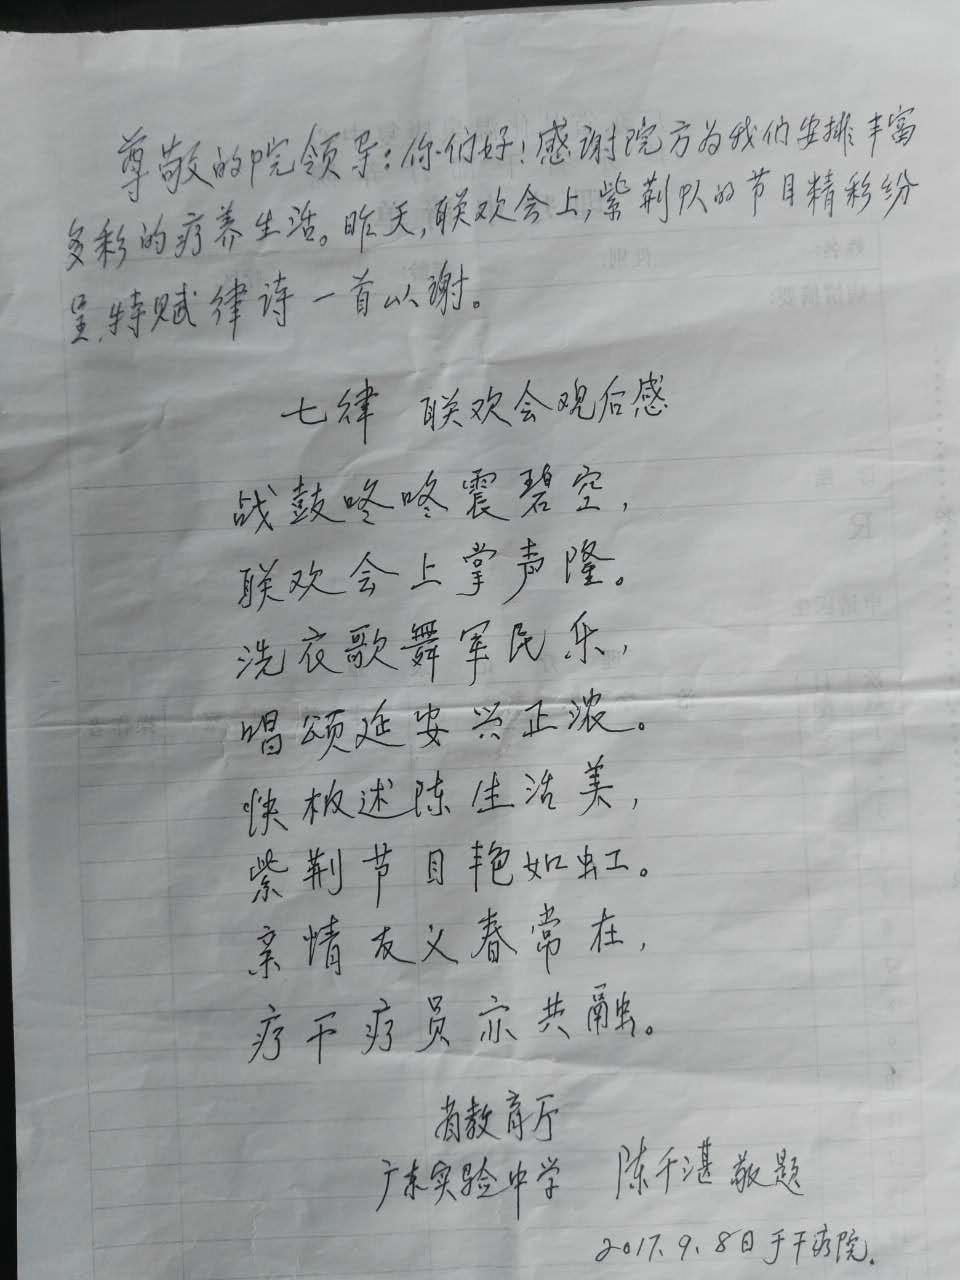 尊敬的院领导：你们好！感谢院方为我们安排丰富
多彩的疗养生活。昨天，联欢会上，紫荆队的节目精彩纷
呈，特赋律诗一首以谢。
七律 联欢会观后感
战鼓咚咚震碧空，
联欢会上掌声隆。
洗衣歌舞军民乐，
唱颂延安兴正浓。
快板述陈生活美，
紫荆节目艳如虹。
亲情友义春常在，
疗干疗员亦共融。
省教育厅
广东实验中学 陈千湛敬题
2017.9.8日于干疗院.